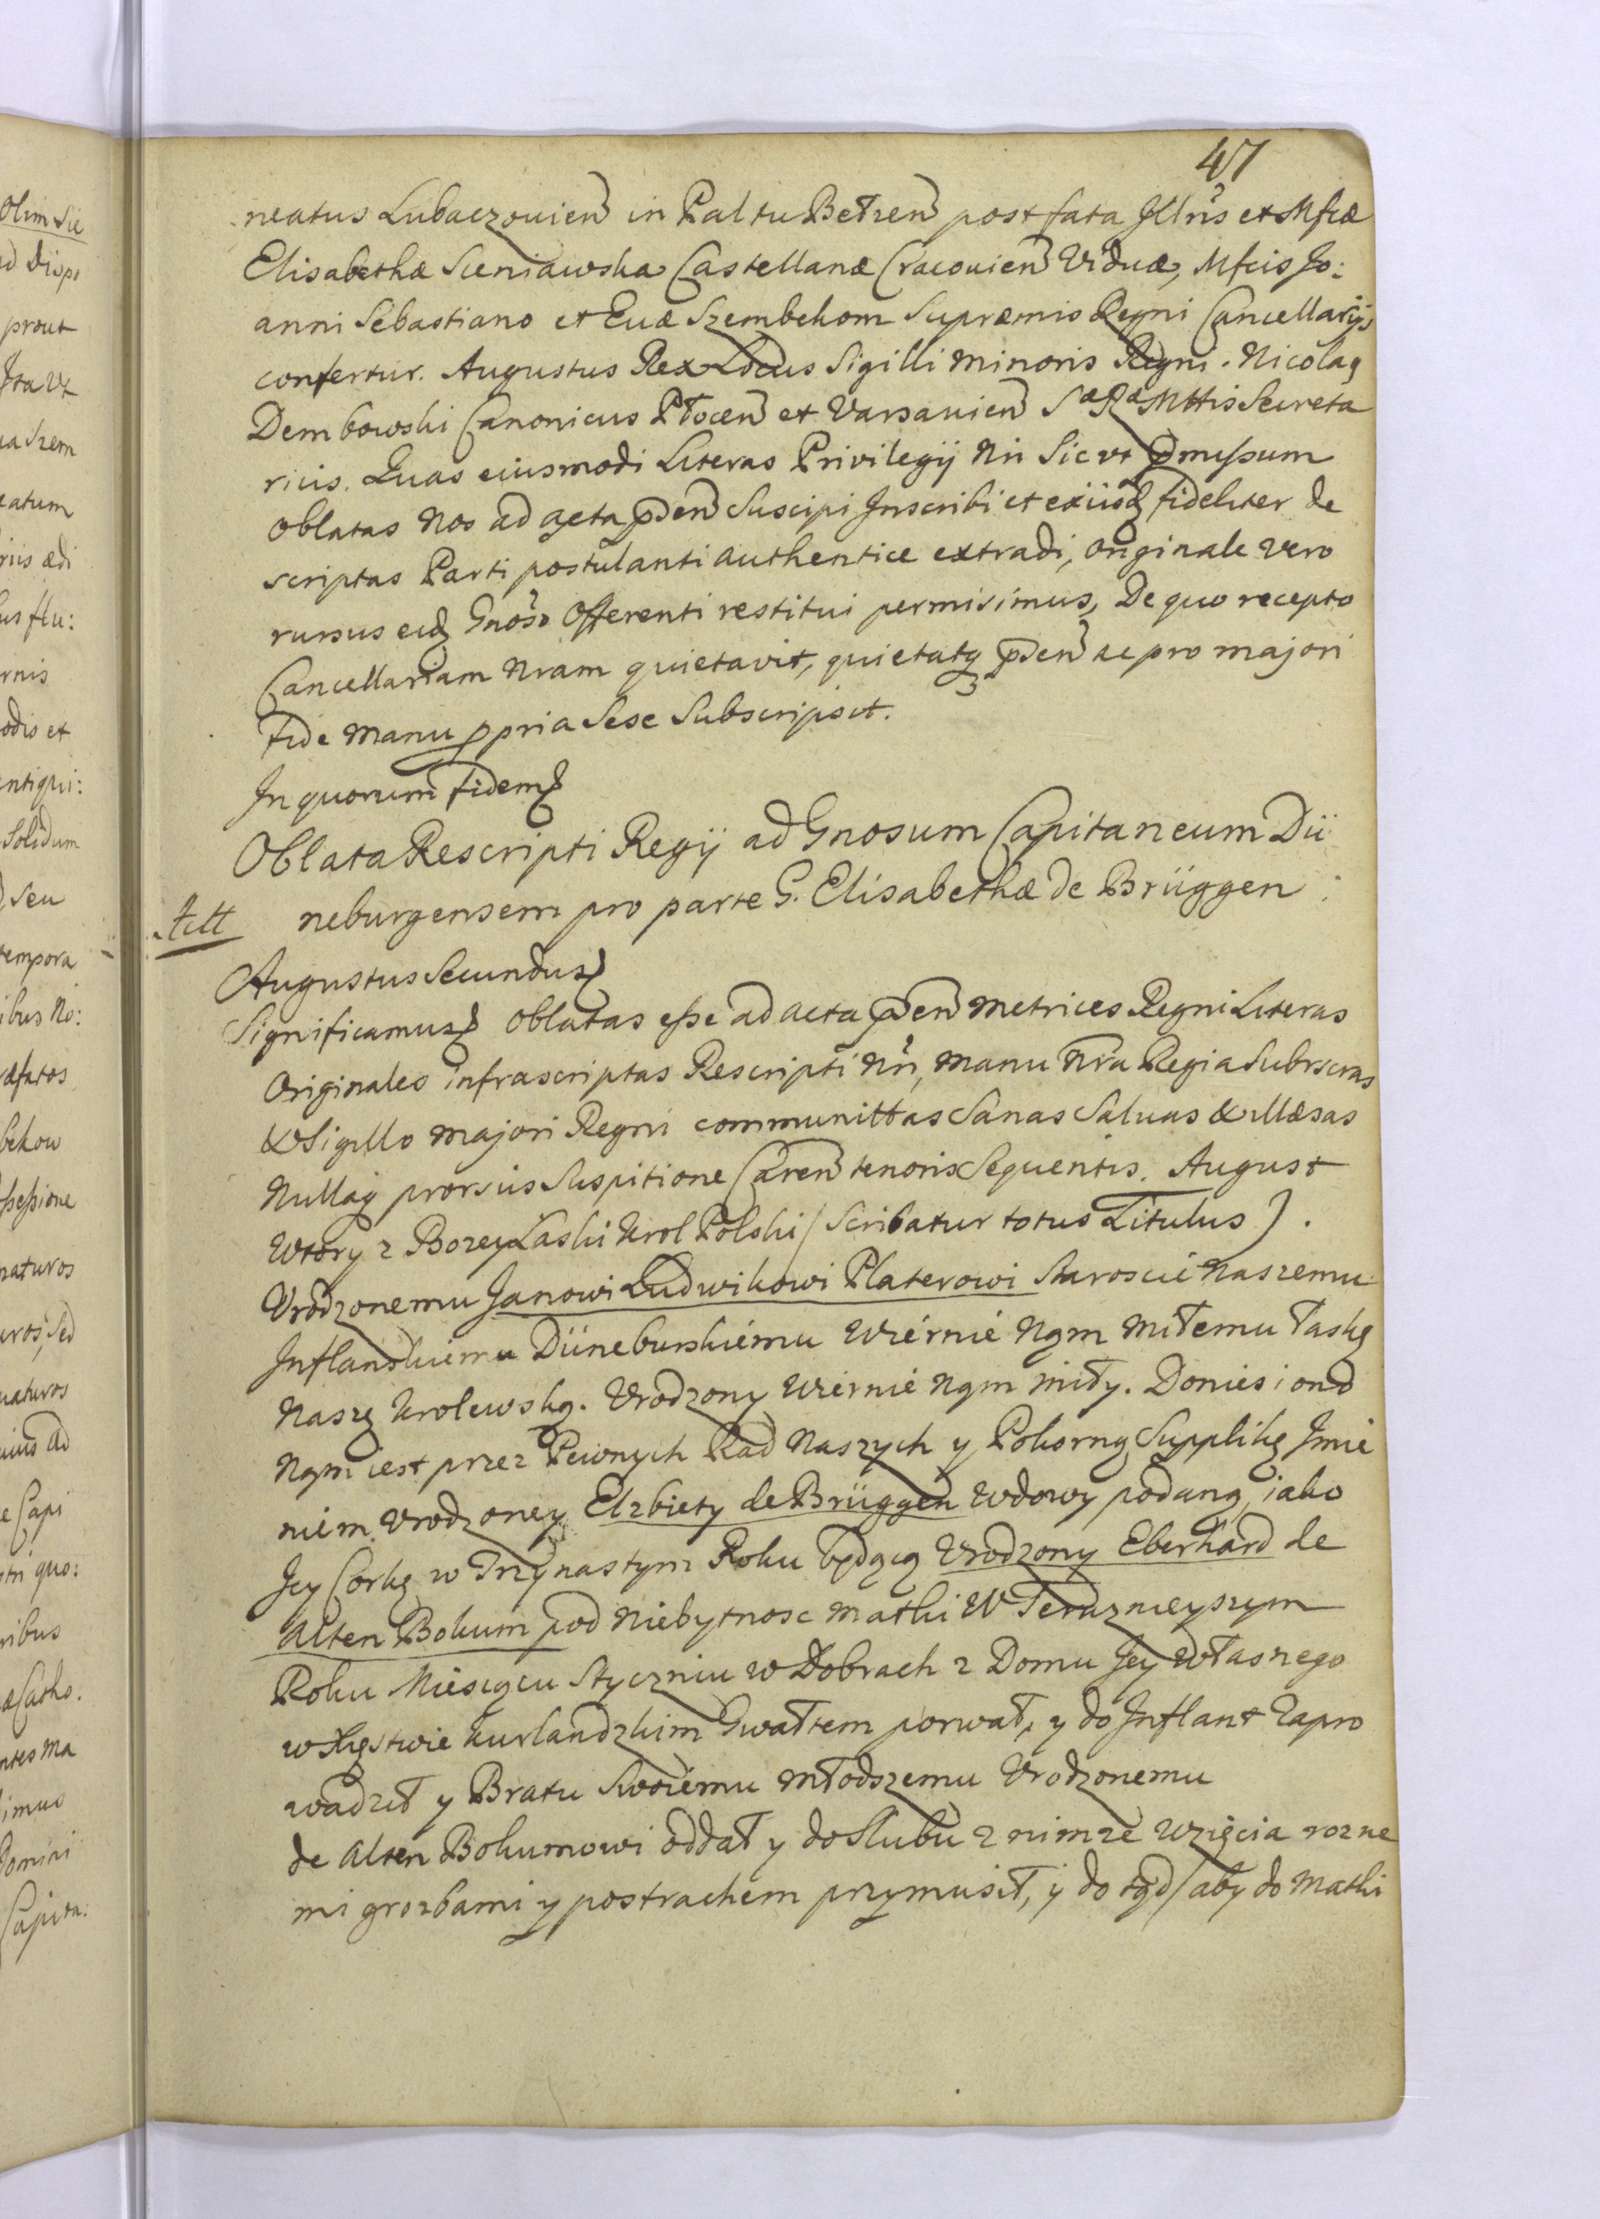 47
neatus Lubaczouien in Paltu Bełzen post fata Jllris et Mfcæ
Elisabethæ Sieniawska Castellanæ Cracouien Viduæ, Mfcis Jo:
anni Sebastiano et Euæ Szembekom Supræmis Regni Cancellarijs
confertur. Augustus Rex Locus Sigilli minoris Regni. Nicolaq
Dembowski Canonicus Płocen et Varsauien Sæ Ræ Mttis Secreta
rius. Quas eiusmodi Literas Privilegij Nri Sic vt pmissum
oblatas Nos ad acta pden Suscipi Jnscribi et exijsq fideliter de
scriptas Parti postulanti authentice extradi, originale vero
rursus eidq Gnoso Offerenti restitui permisimus, De quo recepto
Cancellariam Nram quietavit, quietatq pden ac pro majori
fide manu ppria Sese Subscripsit.
Jn quorum fidem
Oblata Rescripti Regij ad Gnosum Capitaneum Dü
neburgensem pro parte G. Elisabethæ de Brüggen
Augustus Secundus
Significamus Oblatas esse ad acta pden metrices Regni Literas
Originales infrascriptas Rescripti Nri, manu Nra Regia Subrscras
& Sigillo majori Regni communittas Sanas Saluas & illæsas
Nullaq prorsus Suspitione Caren tenoris Sequentis. August
Wtory z Bozey Laski Krol Polski (Scribatur totus Titulus).
Vrodzonemu Janowi Ludwikowi Platerowi Staroscie naszemu
Jnflanskiemu Düneburskiému Wiérnié Nąm miłemu łaskę
Naszę Krolewską. Vrodzony Wiérnié Nąm miły. Doniesiono
Nąm iest przez Pewnych Rad Naszych y Pokorną Supplikę Jmie
niem Vrodzoney Elzbiety de Brüggen Wdowy podaną, iako
Jey Corkę w Trzynastym Roku będącą Vrodzony Eberhard de
Alten Bokum pod niebytnosc matki W Terazniejszym
Roku Miesiącu Styczniu w Dobrach z Domu Jey własnego
w Xięstwie Kurlandzkim Gwałtem porwał, y do Jnflant Zapro
wadził y Bratu Swoiému młodszemu Vrodzonemu
de Alten Bokumowi oddał y do Slubu z nimze wzięcia rozne
mi grozbami y postrachem przymusił, y do tąd (aby do Matki